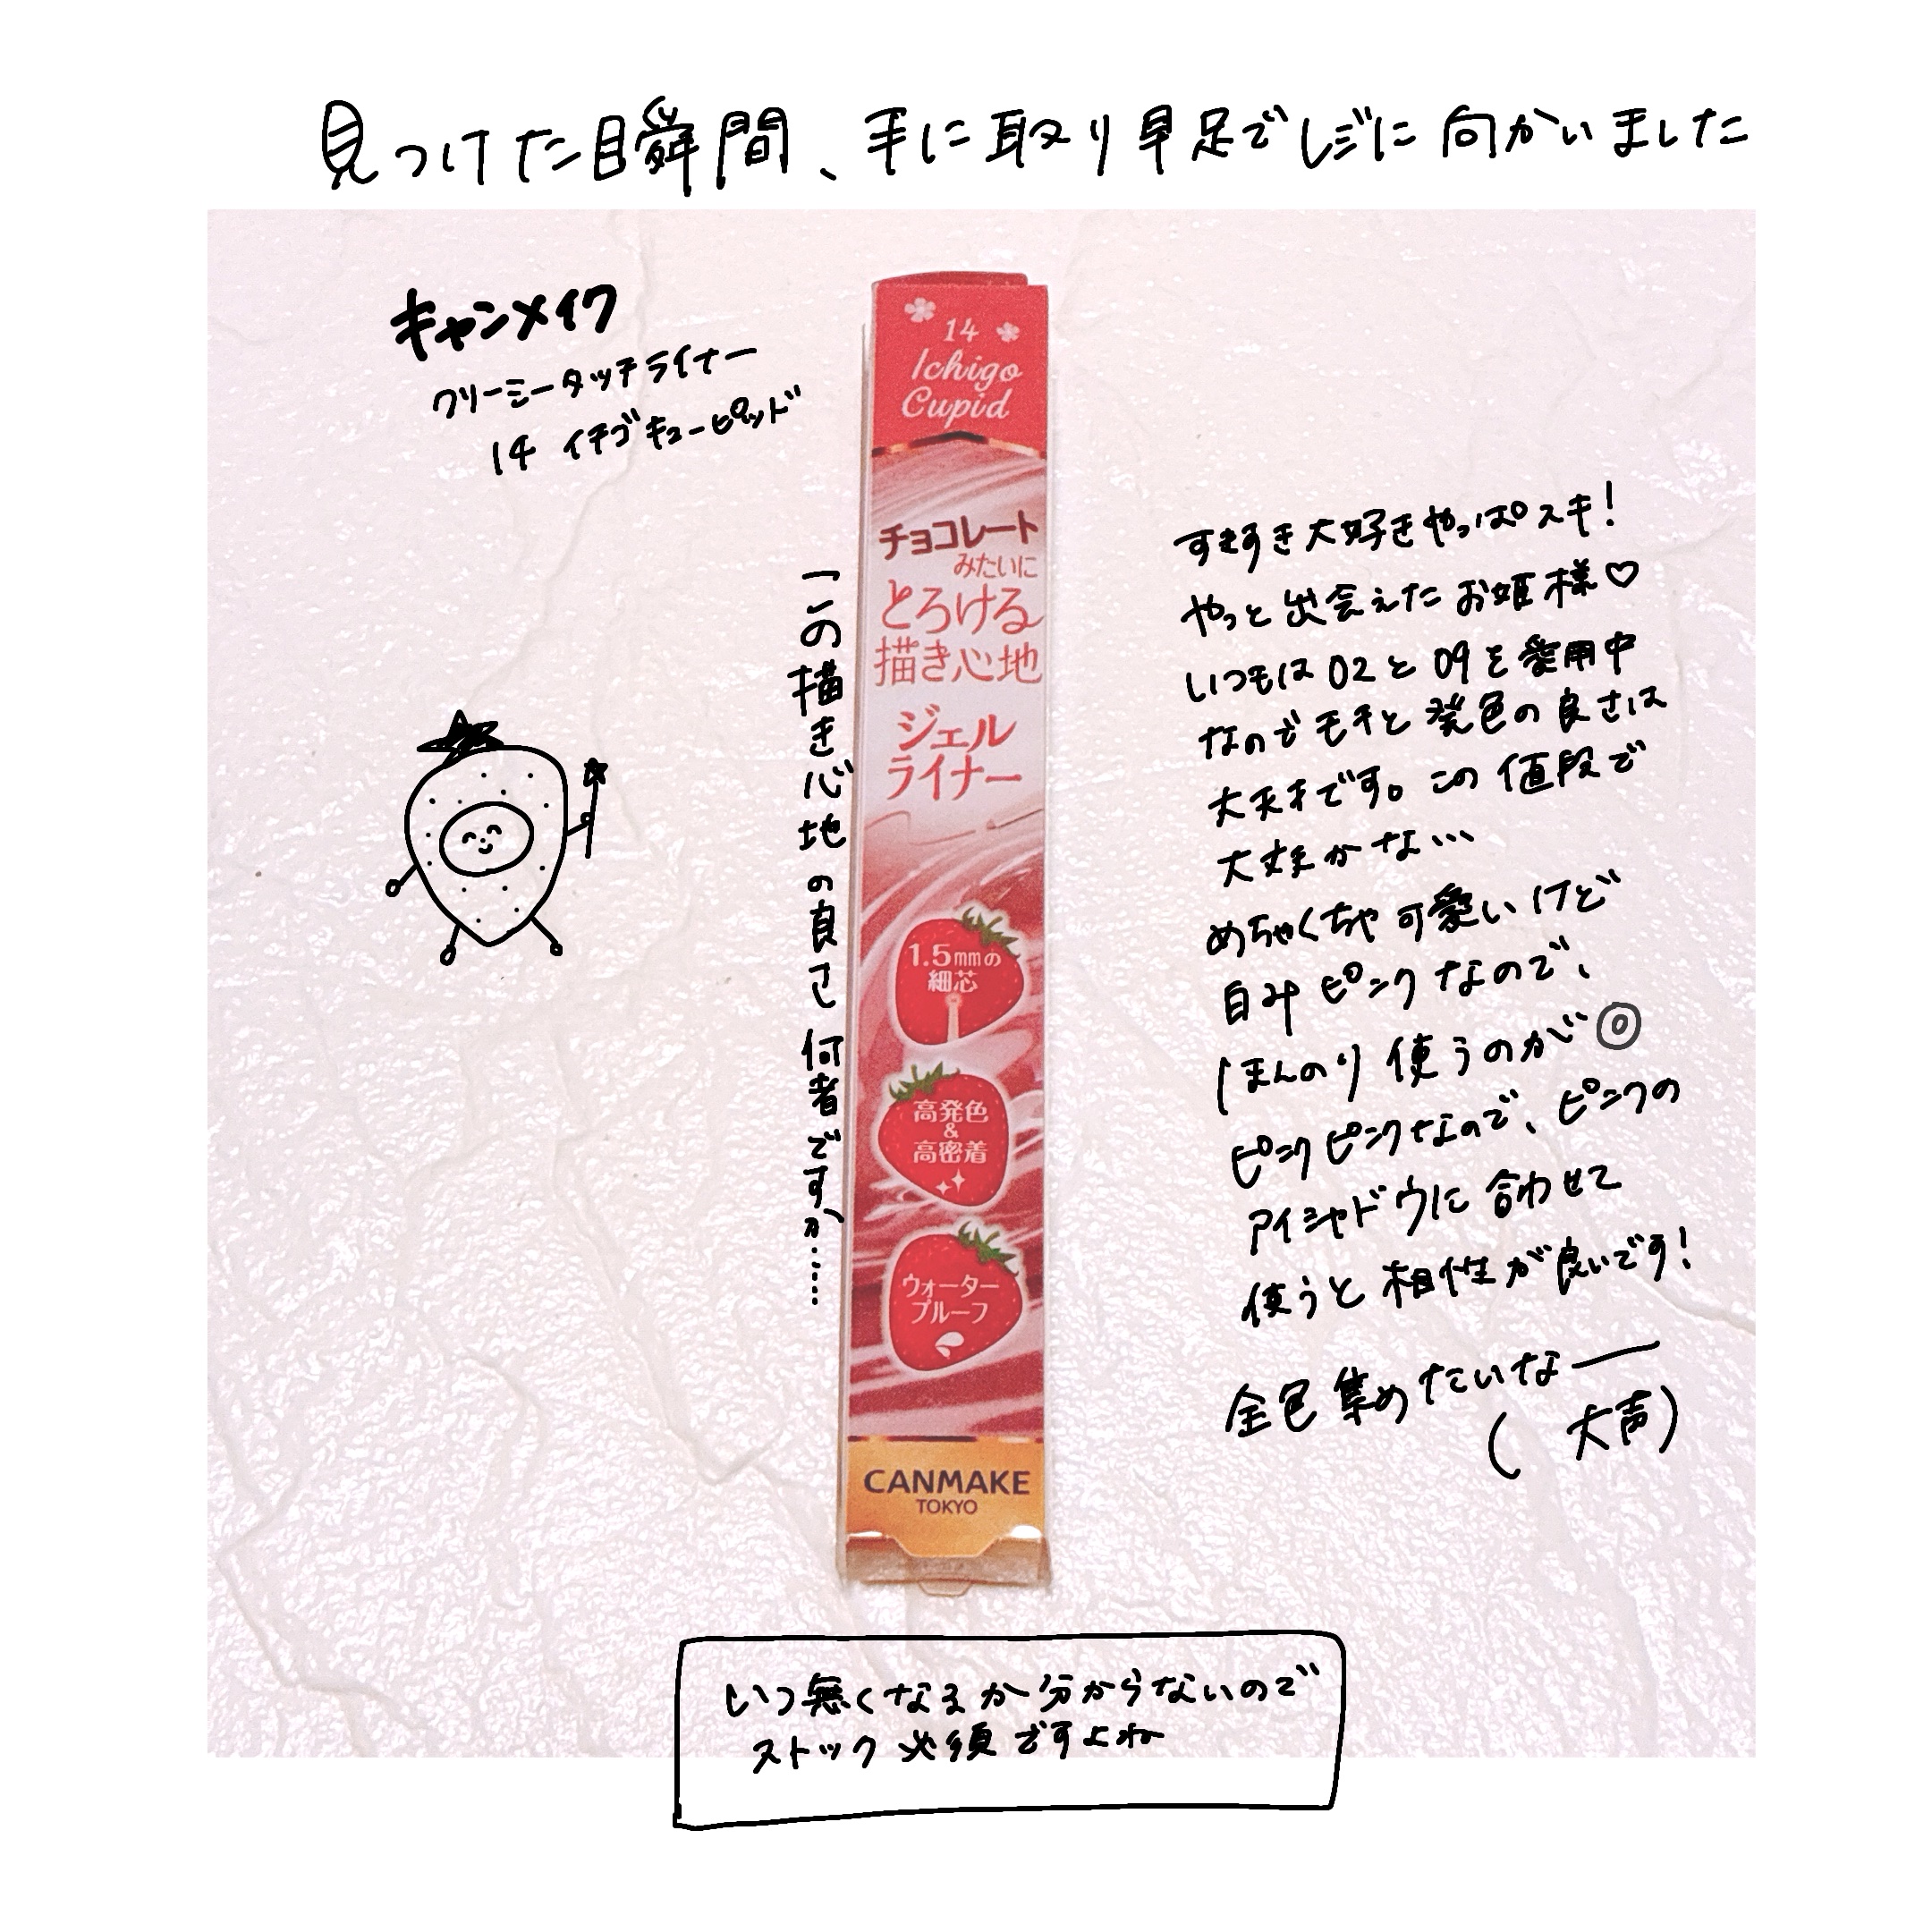 見つけた瞬間、手に取り早足でレジに向かいました
キャンメイク
クリーミータッチライナー
14 イチゴキューピッド
14
Ichigo
Cupid
チョコレート
みたいに
とろける
描き心地
ジェル
ライナー
1.5mmの
細芯
高発色
&
高密着
ウォーター
プルーフ
CANMAKE
TOKYO
この描き心地の良さ何者ですか……
すきすき大好きやっぱスキ!
やっと出会えたお姫様♡
いつもは02と09を愛用中
なのでモチと発色の良さは
大天才です。この値段で
大丈夫かな…
めちゃくちゃ可愛いけど
白みピンクなので、
ほんのり使うのが◎
ピンクピンクなので、ピンクの
アイシャドウに合わせて
使うと相性が良いです!
全色集めたいなー
(大声)
いつ無くなるか分からないので
ストック必須ですよね